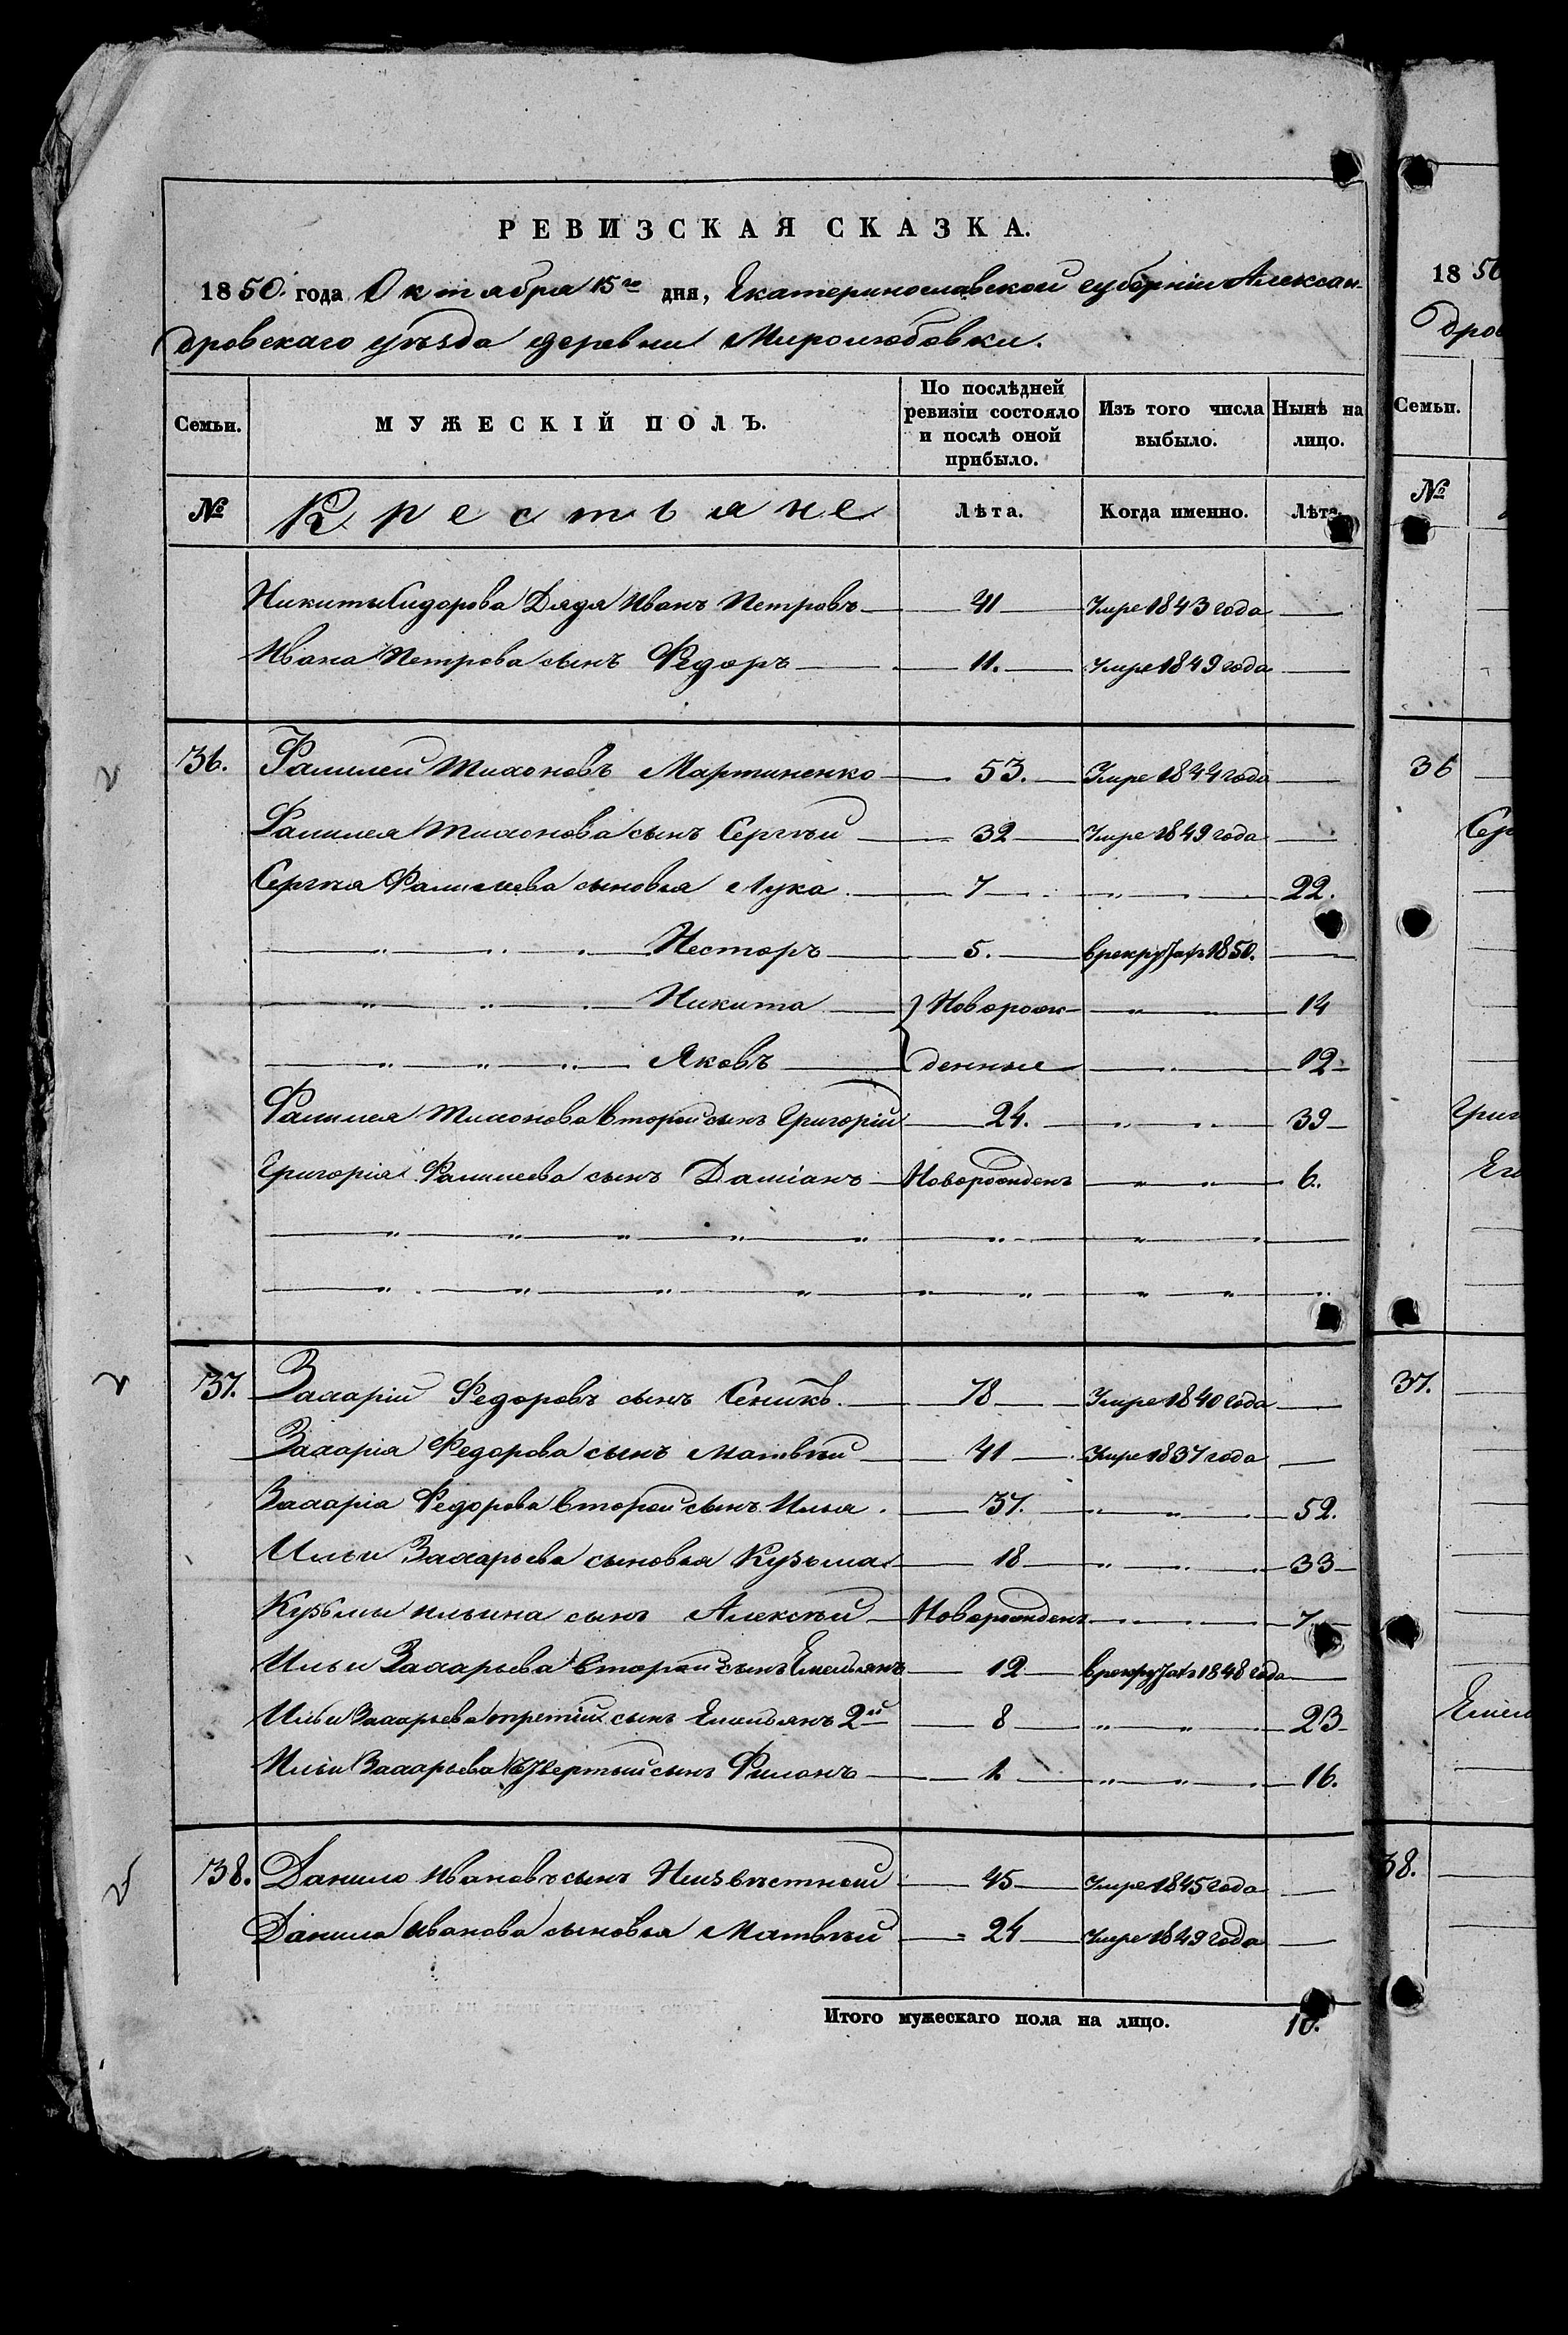 РЕВИЗСКАЯ СКАЗКА.
1850. года Октября 15го дня, Екатеринославской губерніи Алексан-
дровскаго уѣзда деревни Миролюбовки.
Семьи. МУЖЕСКІЙ ПОЛЪ. По послѣдней ревизіи состояло и послѣ оной прибыло. Изъ того числа выбыло. Нынѣ на лицо.
№ Крестьяне Лѣта. Когда именно. Лѣта
Никиты Сидорова Дядя Иванъ Петровъ 41 Умре 1843 года
Ивана Петрова сынъ Федоръ 11. Умре 1849 года
36. Фамилей Тихоновъ Мартиненко 53. Умре 1844 года
Фамилея Тихонова сынъ Сергѣй 32 Умре 1849 года
Сергѣя Фамилеева сыновья Лука 7 22.
Несторъ 5. в рекрутахъ 1850.
Никита } Коворож- 14
Яковъ денные 12
Фамилея Тихонова второй сынъ Григорій 24. 39
Григорія Фамилеева сынъ Даміанъ Новорожденъ 6.
37. Захарій Федоровъ сынъ Сеникъ. 78 Умре 1840 года
Захарія Федорова сынъ Матвѣй 41 Умре 1837 года
Захарія Федорова второй сынъ Илья. 37. 52.
Ильи Захарьева сыновья Кузьма 18 33
Кузьмы Ильина сынъ Алексѣй Новорожденъ 7
Ильи Захарьева второй сынъ Емельянъ 12 в рекрутахъ 1848 года
Ильи Захарьева третій сынъ Емельянъ 2й 8 23
Ильи Захарьева четвертый сынъ Филонъ 1. 16.
38. Данило Ивановъ сынъ Неизвѣстной 45 Умре 1845 года
Данила Иванова сыновья Матвѣй 24 Умре 1849 года
Итого мужескаго пола на лицо. 10.
18 50
дров
Семьи.
№
36
Сер
Григ
Его
37.
Емел
38.